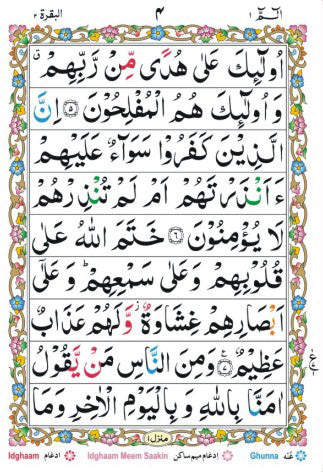 البقرة ٢ ٤ الٓمّٓ ١
اُولٰٓئِكَ عَلٰى هُدًى مِّنْ رَّبِّهِمْ ۙ
وَ اُولٰٓئِكَ هُمُ الْمُفْلِحُوْنَ ۝۵ اِنَّ
الَّذِيْنَ كَفَرُوْا سَوَآءٌ عَلَيْهِمْ
ءَاَنْذَرْتَهُمْ اَمْ لَمْ تُنْذِرْهُمْ
لَا يُؤْمِنُوْنَ ۝۶ خَتَمَ اللّٰهُ عَلٰى
قُلُوْبِهِمْ وَعَلٰى سَمْعِهِمْ ؕ وَ عَلٰٓى
اَبْصَارِهِمْ غِشَاوَةٌ ؗ وَّلَهُمْ عَذَابٌ
عَظِيْمٌ ۝۷ وَمِنَ النَّاسِ مَنْ يَّقُوْلُ
اٰمَنَّا بِاللّٰهِ وَ بِالْيَوْمِ الْاٰخِرِ وَمَا
منزل ١
Idghaam ادغام Idghaam Meem Saakin ادغام ميم ساكن Ghunna غنه